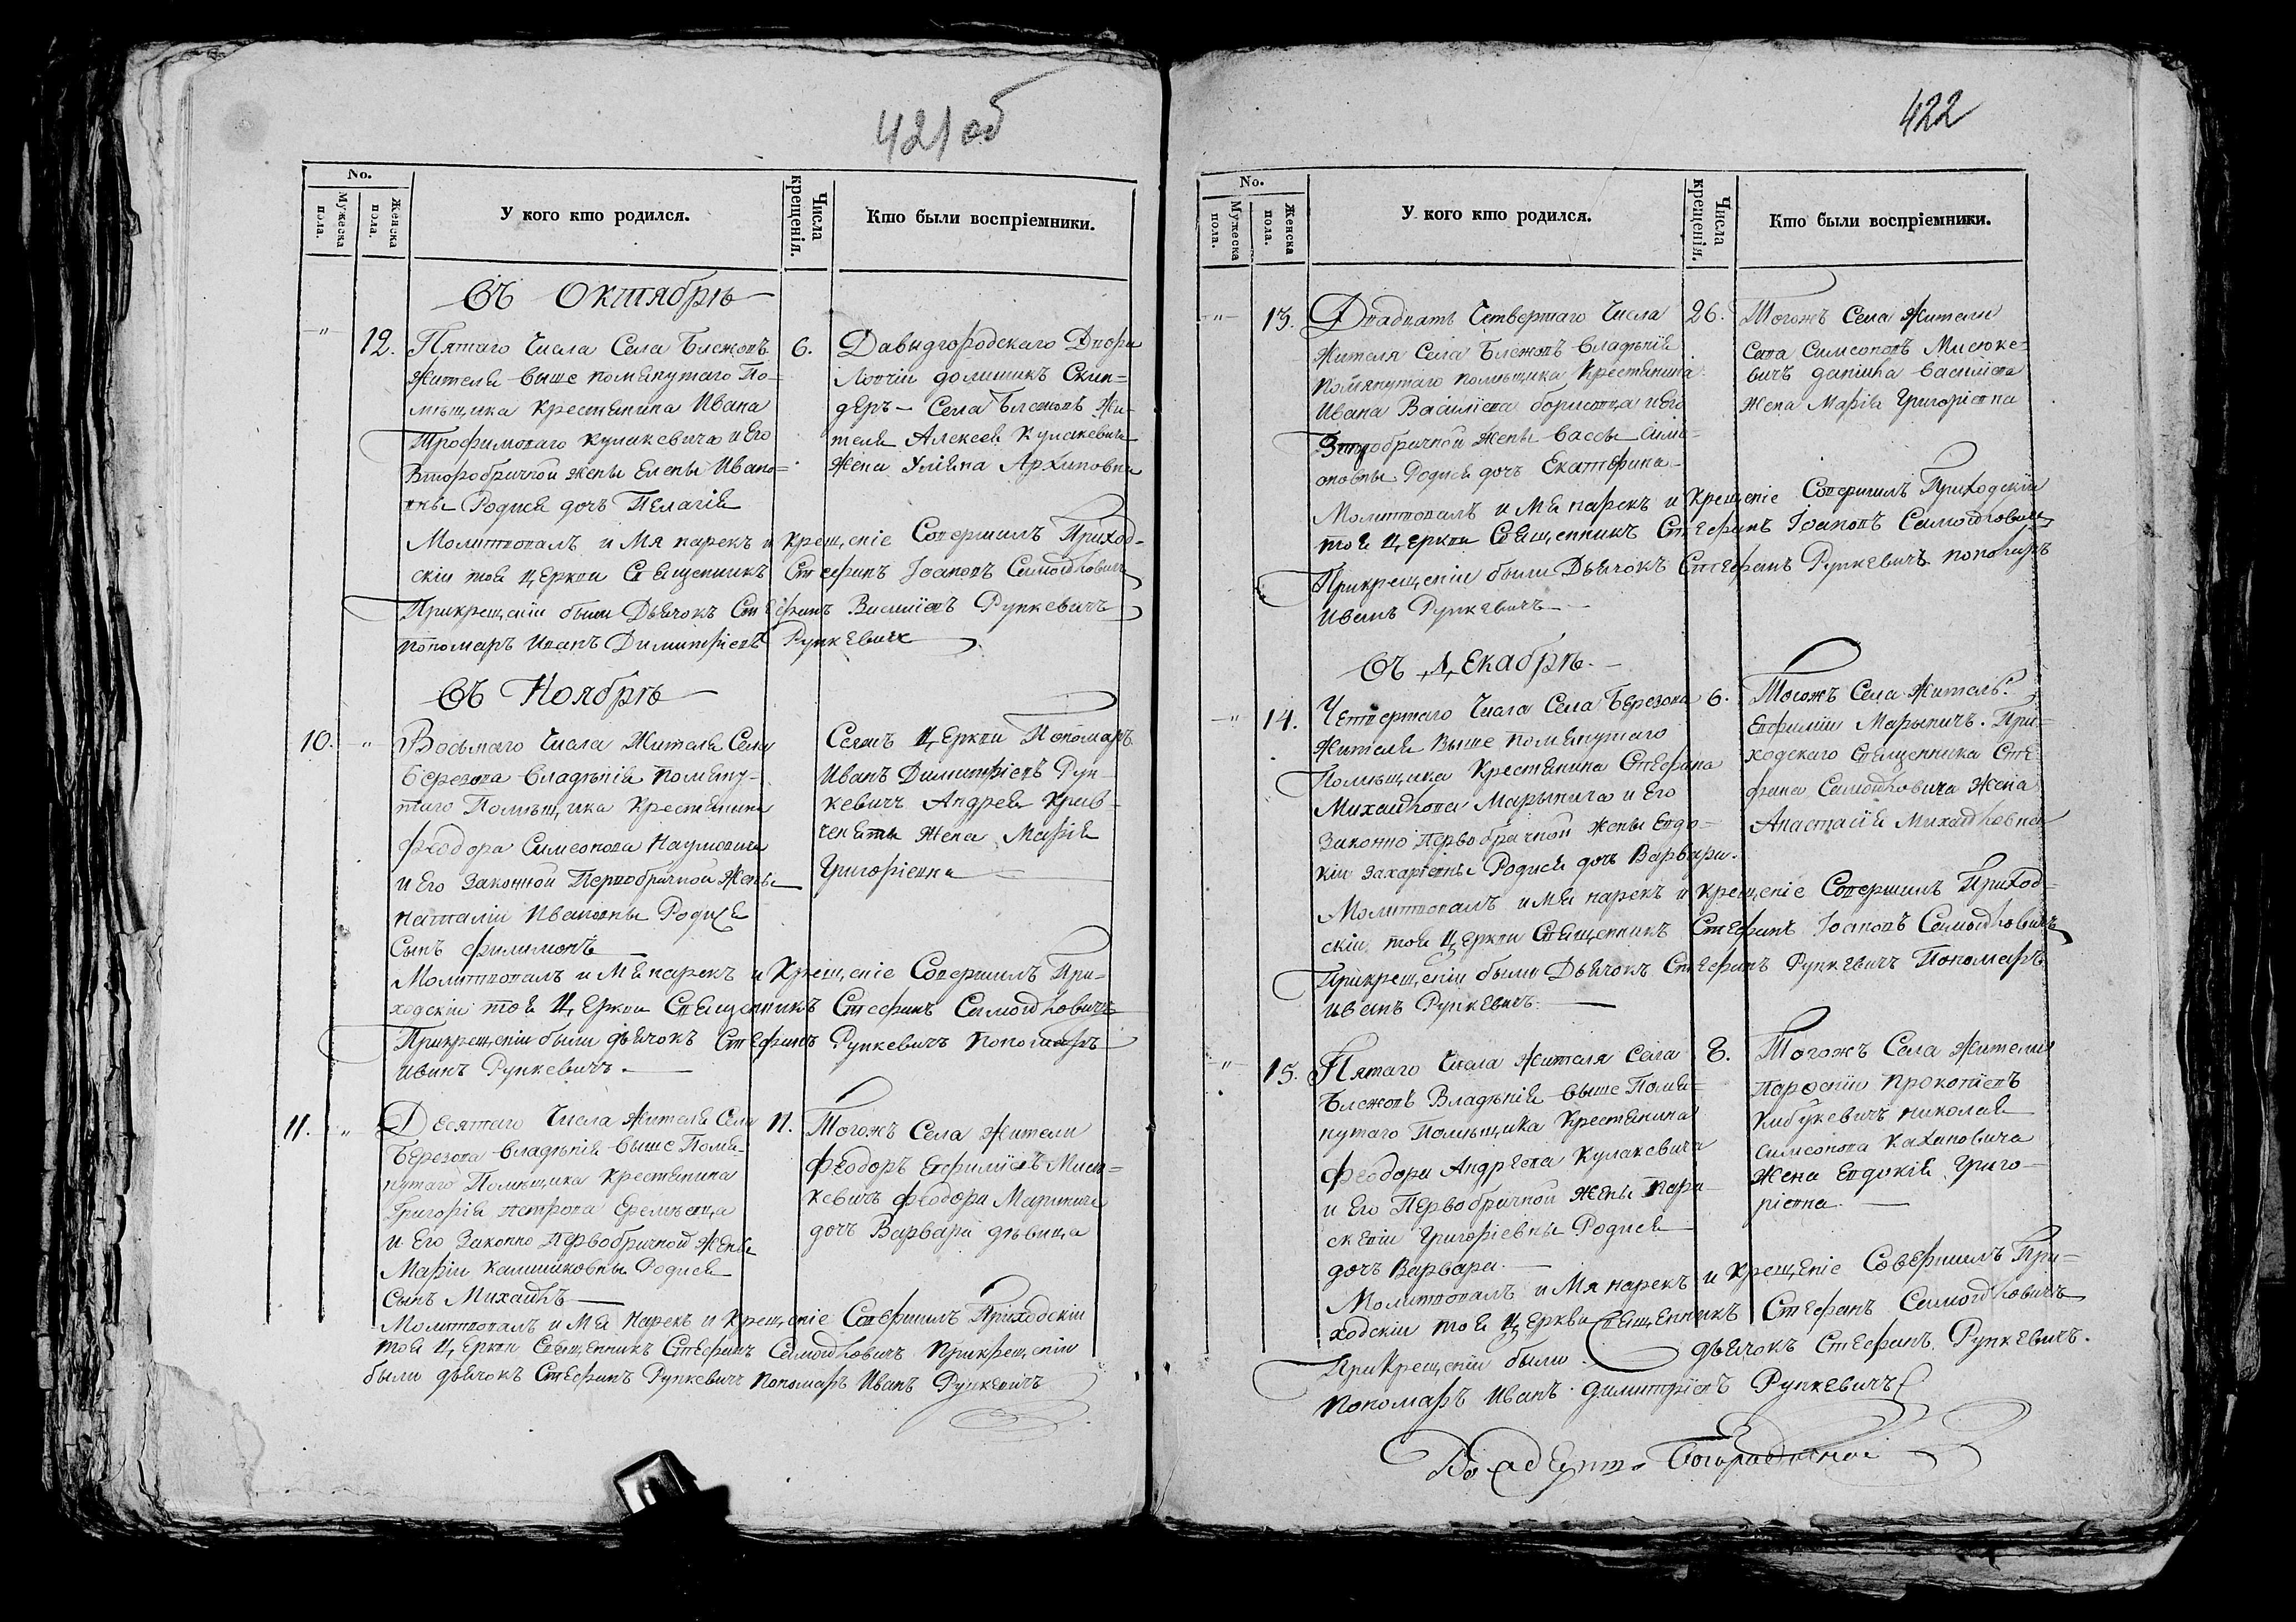 421 об
No.
Мужеска пола.
Женска пола.
У кого кто родился.
Числа крещенія.
Кто были воспріемники.
Въ Октябрѣ
" 12.
Пятаго Числа Села Блежовъ
жителя выше помянутаго По=
мѣщика Крестянина Ивана
Трофимоваго Кулакевича и Его
Второбрачной жены Елены Ивано=
вны Родися дочъ Пелагія
6.
Давыдгородскаго Двора
Ловчіи Скин=
деръ — Села Блежовъ Жи=
теля Алексея Кулакевича
Жена Уліяна Архиповна
Молитвовалъ и Мя нарекъ и Крещеніе Совершилъ Приход=
скіи тоя Церкви Священникъ Стефанъ Іоановъ Самойловичъ
При крещеніи были Дьячокъ Стефанъ Василіевъ Рункевичъ
Пономаръ Иванъ Димитріевъ Рункевичъ
Въ Ноябрѣ
10. "
Восьмаго Числа Жителя Села
Березова Владѣнія помяну=
таго Помѣщика Крестянина
Феодора Симеонова Наумовича
и Его Законной Первобрачной Жены
Наталіи Ивановны Родися
Сынъ Филимонъ
Сеяжъ Церкви Пономаръ
Иванъ Димитріевъ Рун=
кевичъ Андрея Крив=
Жена Марія
Григоріевна
Молитвовалъ и Мя нарекъ и Крещеніе Совершилъ При=
ходскіи тоя Церкви Священникъ Стефанъ Самойловичъ
При крещеніи были дьячокъ Стефанъ Рункевичъ Пономаръ
Иванъ Рункевичъ.
11. "
Десятаго Числа Жителя Села
Березова Владѣнія выше Помя=
нутаго Помѣщика Крестянина
Григорія Петрова Еремѣевца
и Его Законно Первобрачной Жены
Маріи Калиниковны Родися
Сынъ Михаилъ
11.
Тогожъ Села жители
Феодоръ Евфиміевъ Мисю=
кевичъ Феодора
дочъ Варвара дѣвица
Молитвовалъ и Мя Нарекъ и Крещеніе Совершилъ Приходскіи
тоя Церкви Священникъ Стефанъ Самойловичъ При крещеніи
были дьячокъ Стефанъ Рункевичъ Пономаръ Иванъ Рункевичъ
422
No.
Мужеска пола.
Женска пола.
У кого кто родился.
Числа крещенія.
Кто были воспріемники.
" 13.
Двадцать Четвертаго Числа
Жителя Села Блежовъ Владѣнія
помянутаго помѣщика Крестянина
Ивана Василіева Борисовца и Его
Второбрачной жены Вассы Симе=
оновны Родися дочъ Екатерина
26.
Тогожъ Села Жители
Сава Симеоновъ Мисюке=
вичъ Даніила Василіева
Жена Марія Григоріевна
Молитвовалъ и Мя нарекъ и Крещеніе Совершилъ Приходскіи
тоя Церкви Священникъ Стефанъ Іоановъ Самойловичъ
При крещеніи были Дьячокъ Стефанъ Рункевичъ пономаръ
Иванъ Рункевичъ
Въ Декабрѣ.
" 14.
Четвертаго Числа Села Березова
Жителя Выше помянутаго
Помѣщика Крестянина Стефана
Михайлова Марынича и Его
Законно Первобрачной Жены Евдо=
кіи Захаріевны Родися дочъ Варвара.
6.
Тогожъ Села Житель
Евфимій Марыничъ. При=
ходскаго Священника Сте=
фана Самойловича Жена
Анастасія Михайловна
Молитвовалъ и Мя нарекъ и Крещеніе Совершилъ Приход=
скіи тоя Церкви Священникъ Стефанъ Іоановъ Самойловичъ
При крещеніи были Дьячокъ Стефанъ Рункевичъ Пономаръ
Иванъ Рункевичъ
" 15.
Пятаго Числа Жителя Села
Блежовъ Владѣнія выше Помя=
нутаго Помѣщика Крестянина
Феодора Андреева Кулакевича
и Его Первобрачной Жены Пара=
скевіи Григоріевны Родися
дочъ Варвара.
8.
Тогожъ Села Жители
Прокопіевъ
Кибукевичъ Николая
Симеонова Кахановича
Жена Евдокія Григо=
ріевна.
Молитвовалъ и Мя нарекъ и Крещеніе Совершилъ При=
ходскіи тоя Церкви Священникъ Стефанъ Самойловичъ
При Крещеніи были дьячокъ Стефанъ Рункевичъ.
Пономаръ Иванъ Димитріевъ Рункевичъ